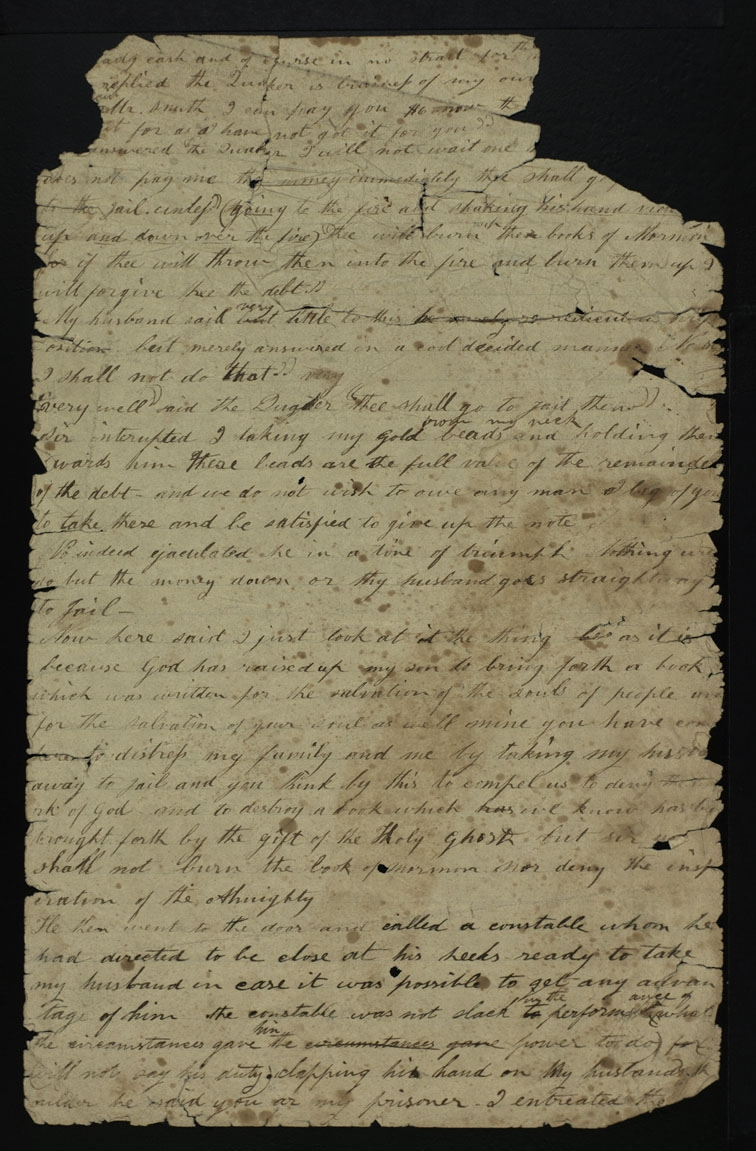 ady cash and of course in no strait for th
replied the Quaker is buisness of my own
Mr. Smith I can pay you now th
t for as I have not got it for you"
answered the Quaker I will not wait one
does not pay me the money immediately thee shall g
to the jail. unless (going to the fire and shaking his hand
up and down over the fire) thee will burn those books of Mormon
if thee will throw then into the fire and burn them up I
will forgive thee the debt."
My husband said but very little to this
osition but merely answered in a cool decided manner No
I shall not do that" very
very well" said the Quaker "thee shall go to jail then"
Sir interupted I taking my gold beads from my neck and holding them
wards him these beads are the full value of the remainder
of the debt - and we do not wish to owe any man I beg of you
to take these and be satisfied to give up the note
No indeed ejaculated he in a tone of triumph Nothing
do but the money down or thy husband goes straightway
to Jail -
Now here said I just look at the thing as it is
because God has raised up my son to bring forth a book
which was written for the salvation of the souls of people an
for the salvation of your soul as well mine you have com
to distress my family and me by taking my hus
away to jail and you think by this to compel us to deny
rk of God and to destroy a book which we know has b
brought forth by the gift of the Holy ghost but sir we
shall not burn the book of mormon nor deny the insp
iration of the Almighty
He then went to the door and called a constable whom he
had directed to be close at his heels ready to take
my husband in case it was possible to get any advan
tage of him the constable was not slack in the to performance of what
the circumstances gave him the circumstances gave power to do) for
will not say his duty. clapping his hand on My husbands sh
oulder he said you ar my prisoner - I entreated the